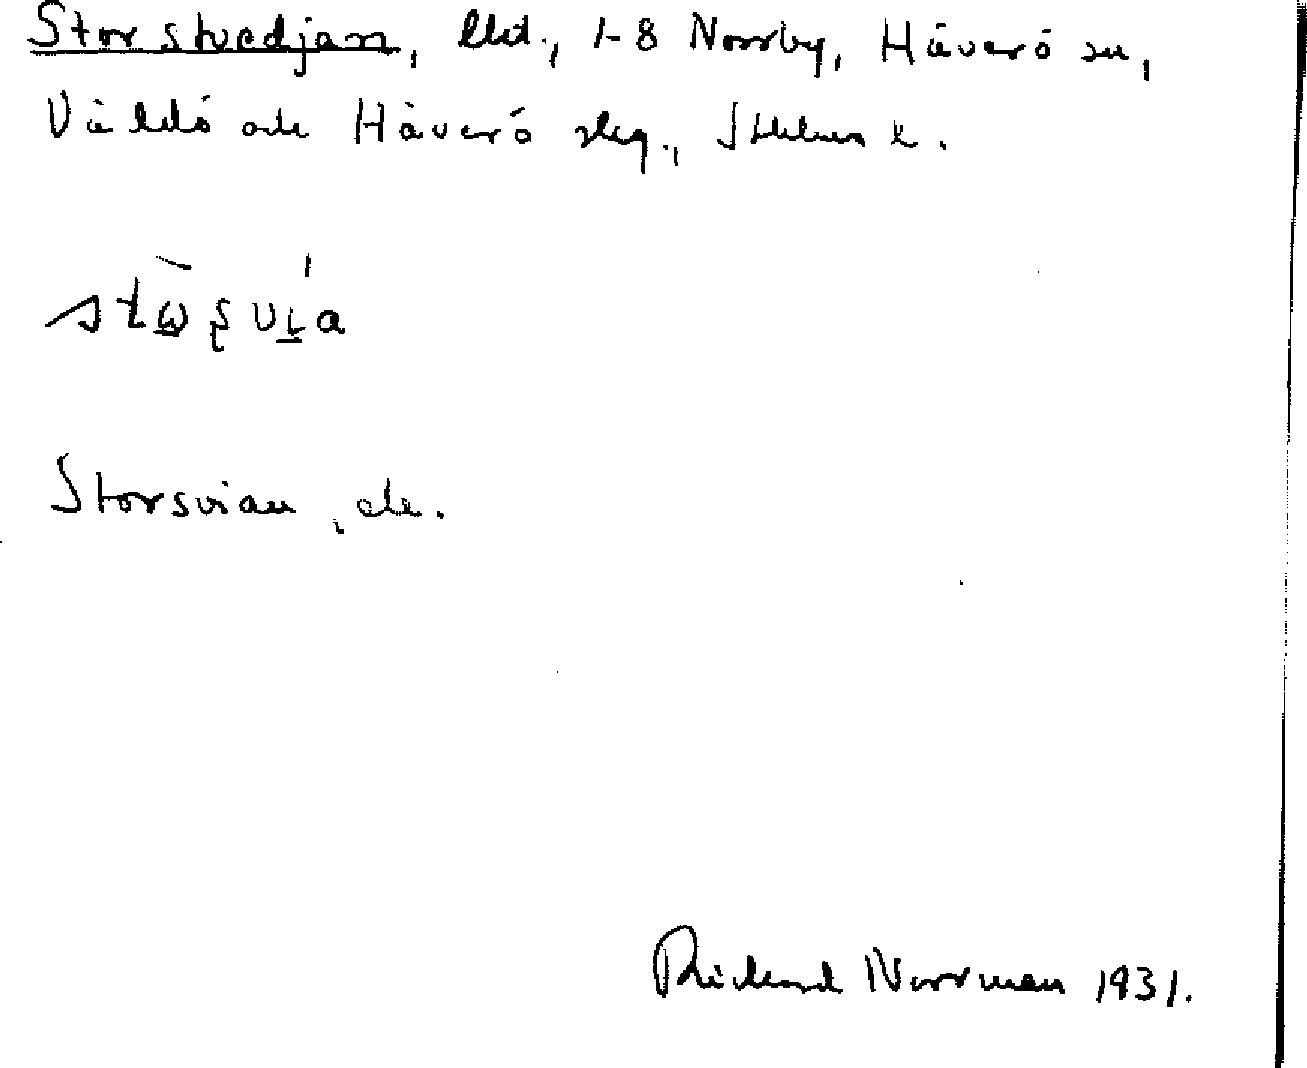 Storsvedjan, 1-8 Norrby, Häverö sn,
Väddö och Häverö skg., Sthlms l.
Storsvian, de.
Richard Norrman 1931.